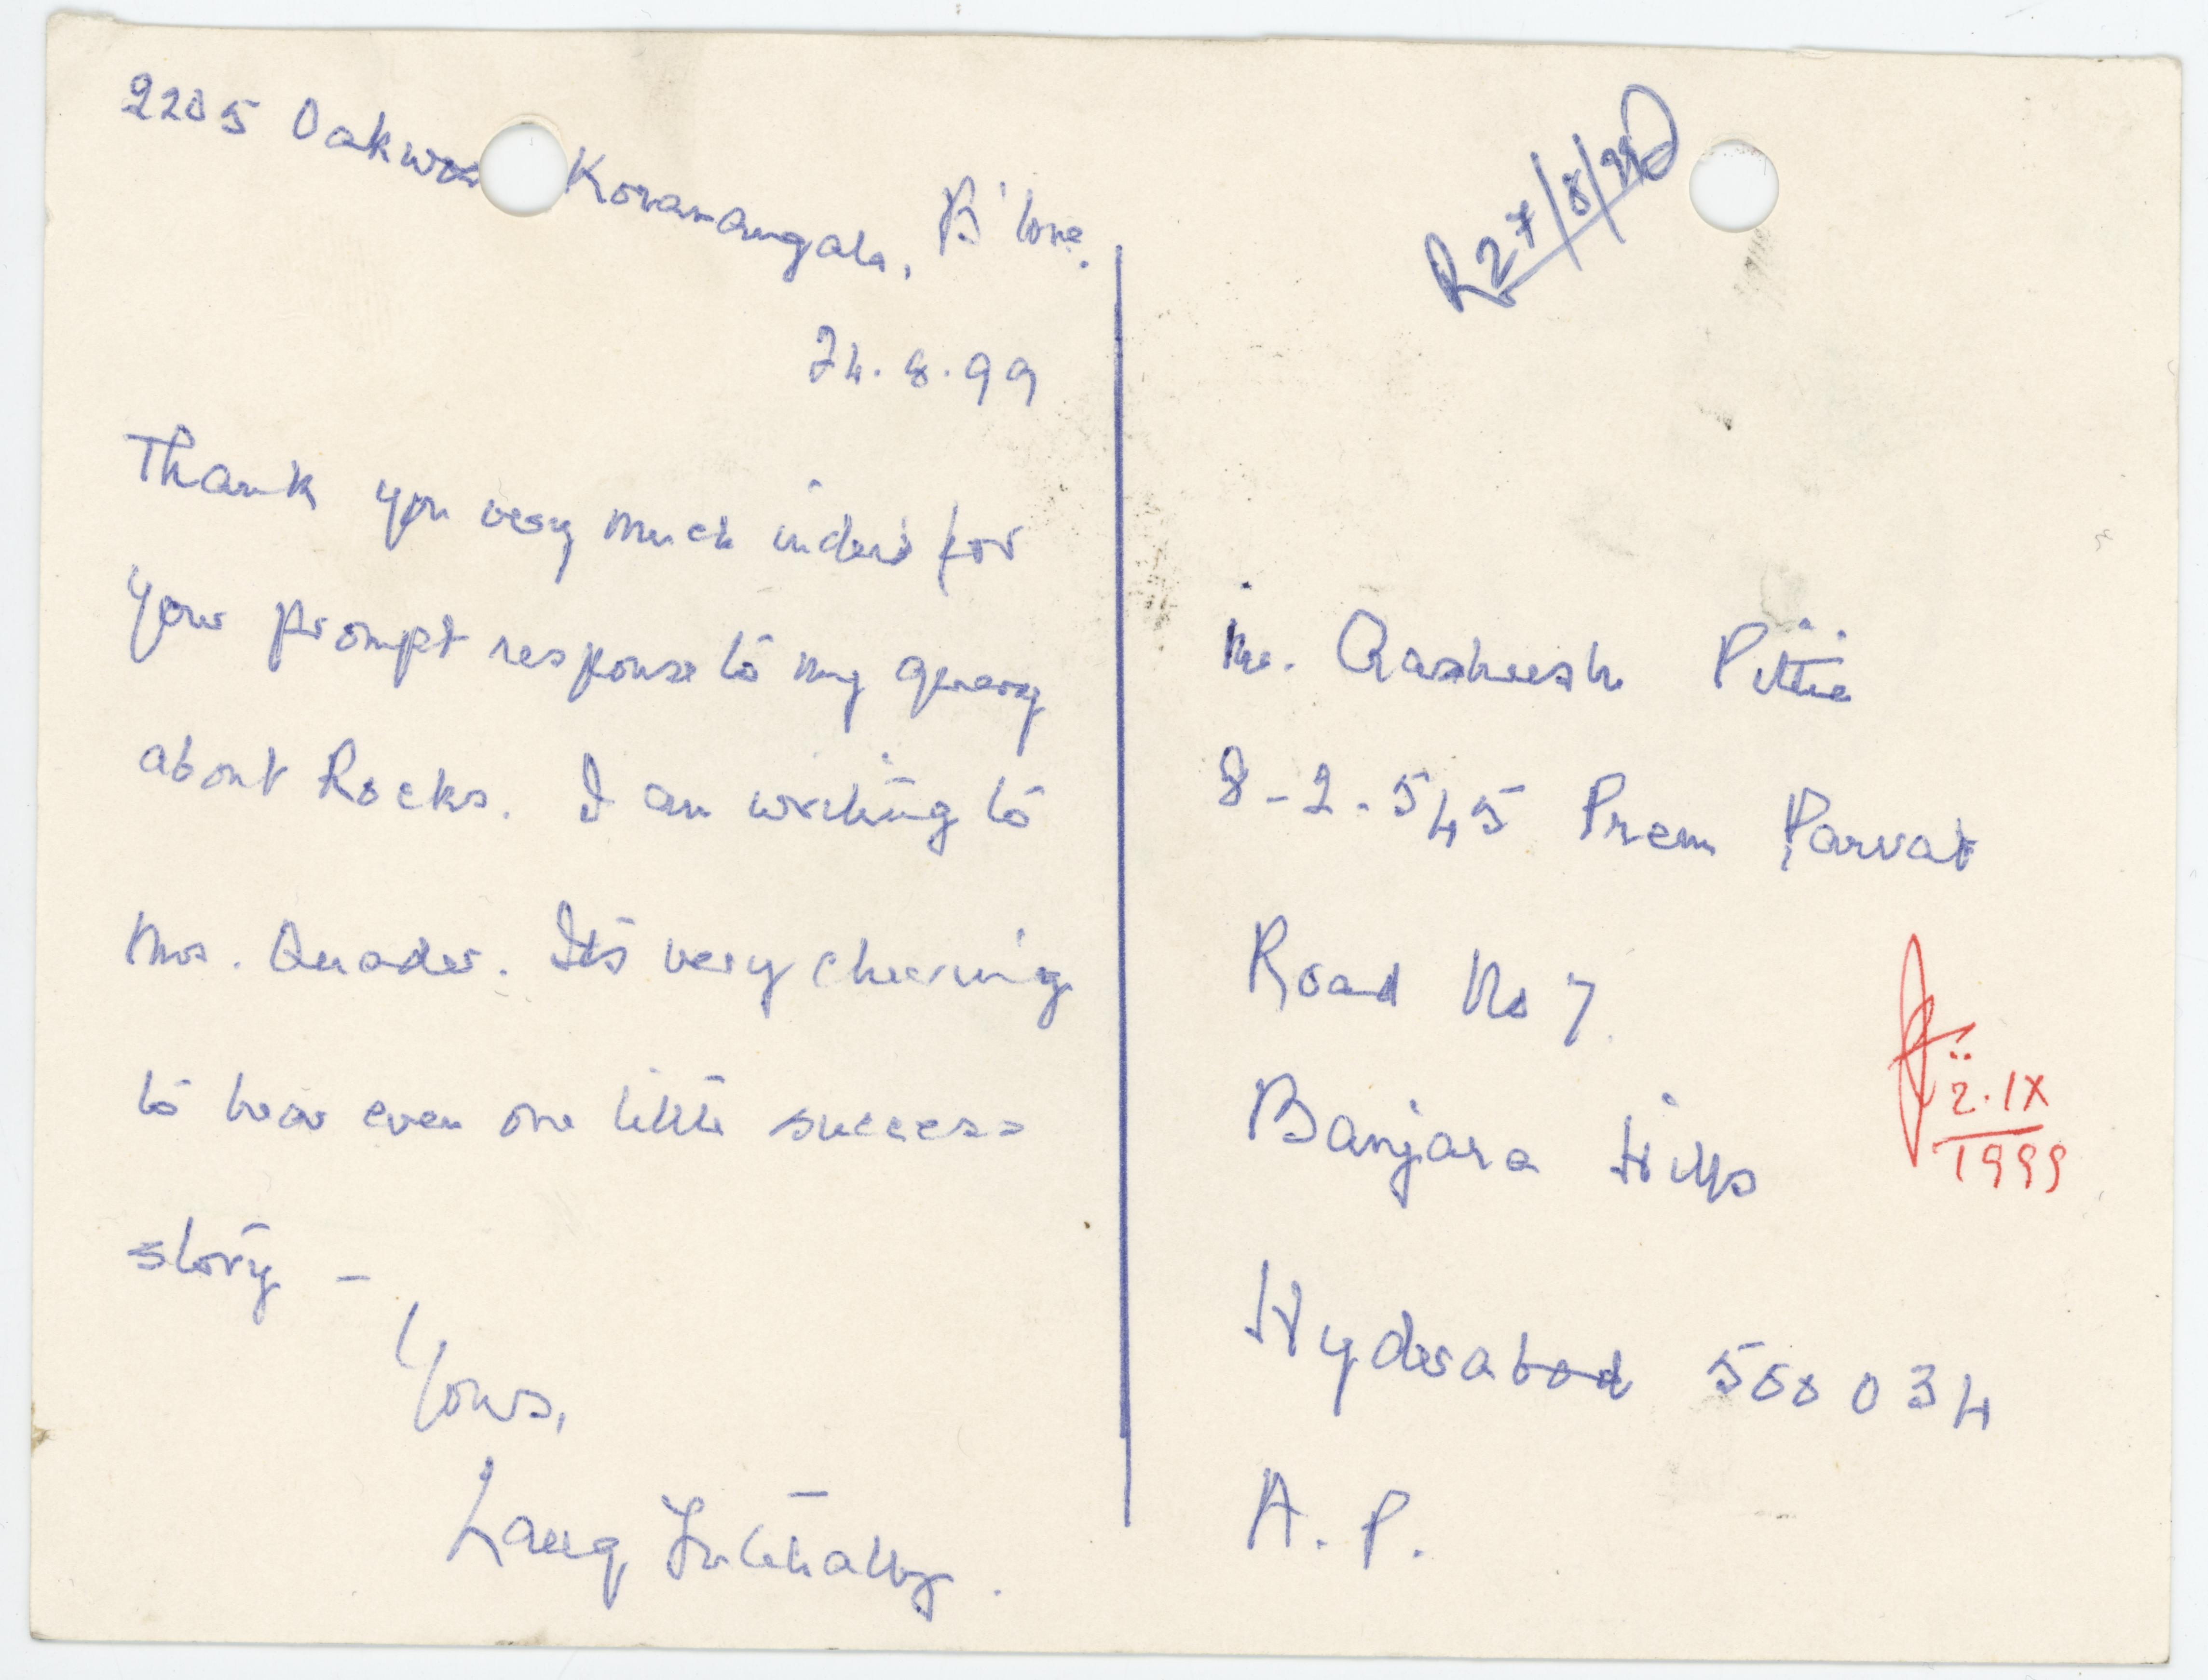 2205 Oakwoo Koramangala, B'lore.
24.8.99
Thank you very much indeed for
your prompt response to my query
about Rocks. I am writing to
Mrs. Quader. It's very cheering
to hear even one little success
story –
Yours,
Laeeq Futehally.
R 27/8/99
Mr. Aasheesh Pittie
8-2-545 Prem Parvat
Road No 7
Banjara Hills
2.IX
1999
Hyderabad 500 034
A.P.